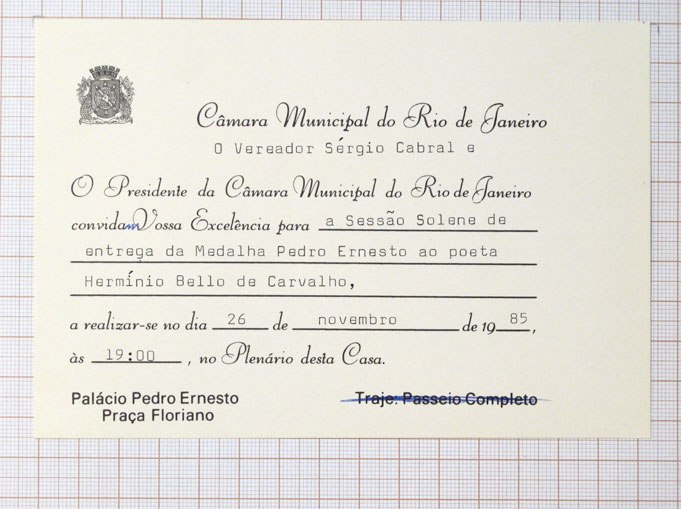 Câmara Municipal do Rio de Janeiro
O Vereador Sérgio Cabral e
O Presidente da Câmara Municipal do Rio de Janeiro
convidam Vossa Excelência para a Sessão Solene de
entrega da Medalha Pedro Ernesto ao poeta
Hermínio Bello de Carvalho,
a realizar-se no dia 26 de novembro de 1985,
às 19:00, no Plenário desta Casa.
Palácio Pedro Ernesto
Praça Floriano
Traje: Passeio Completo